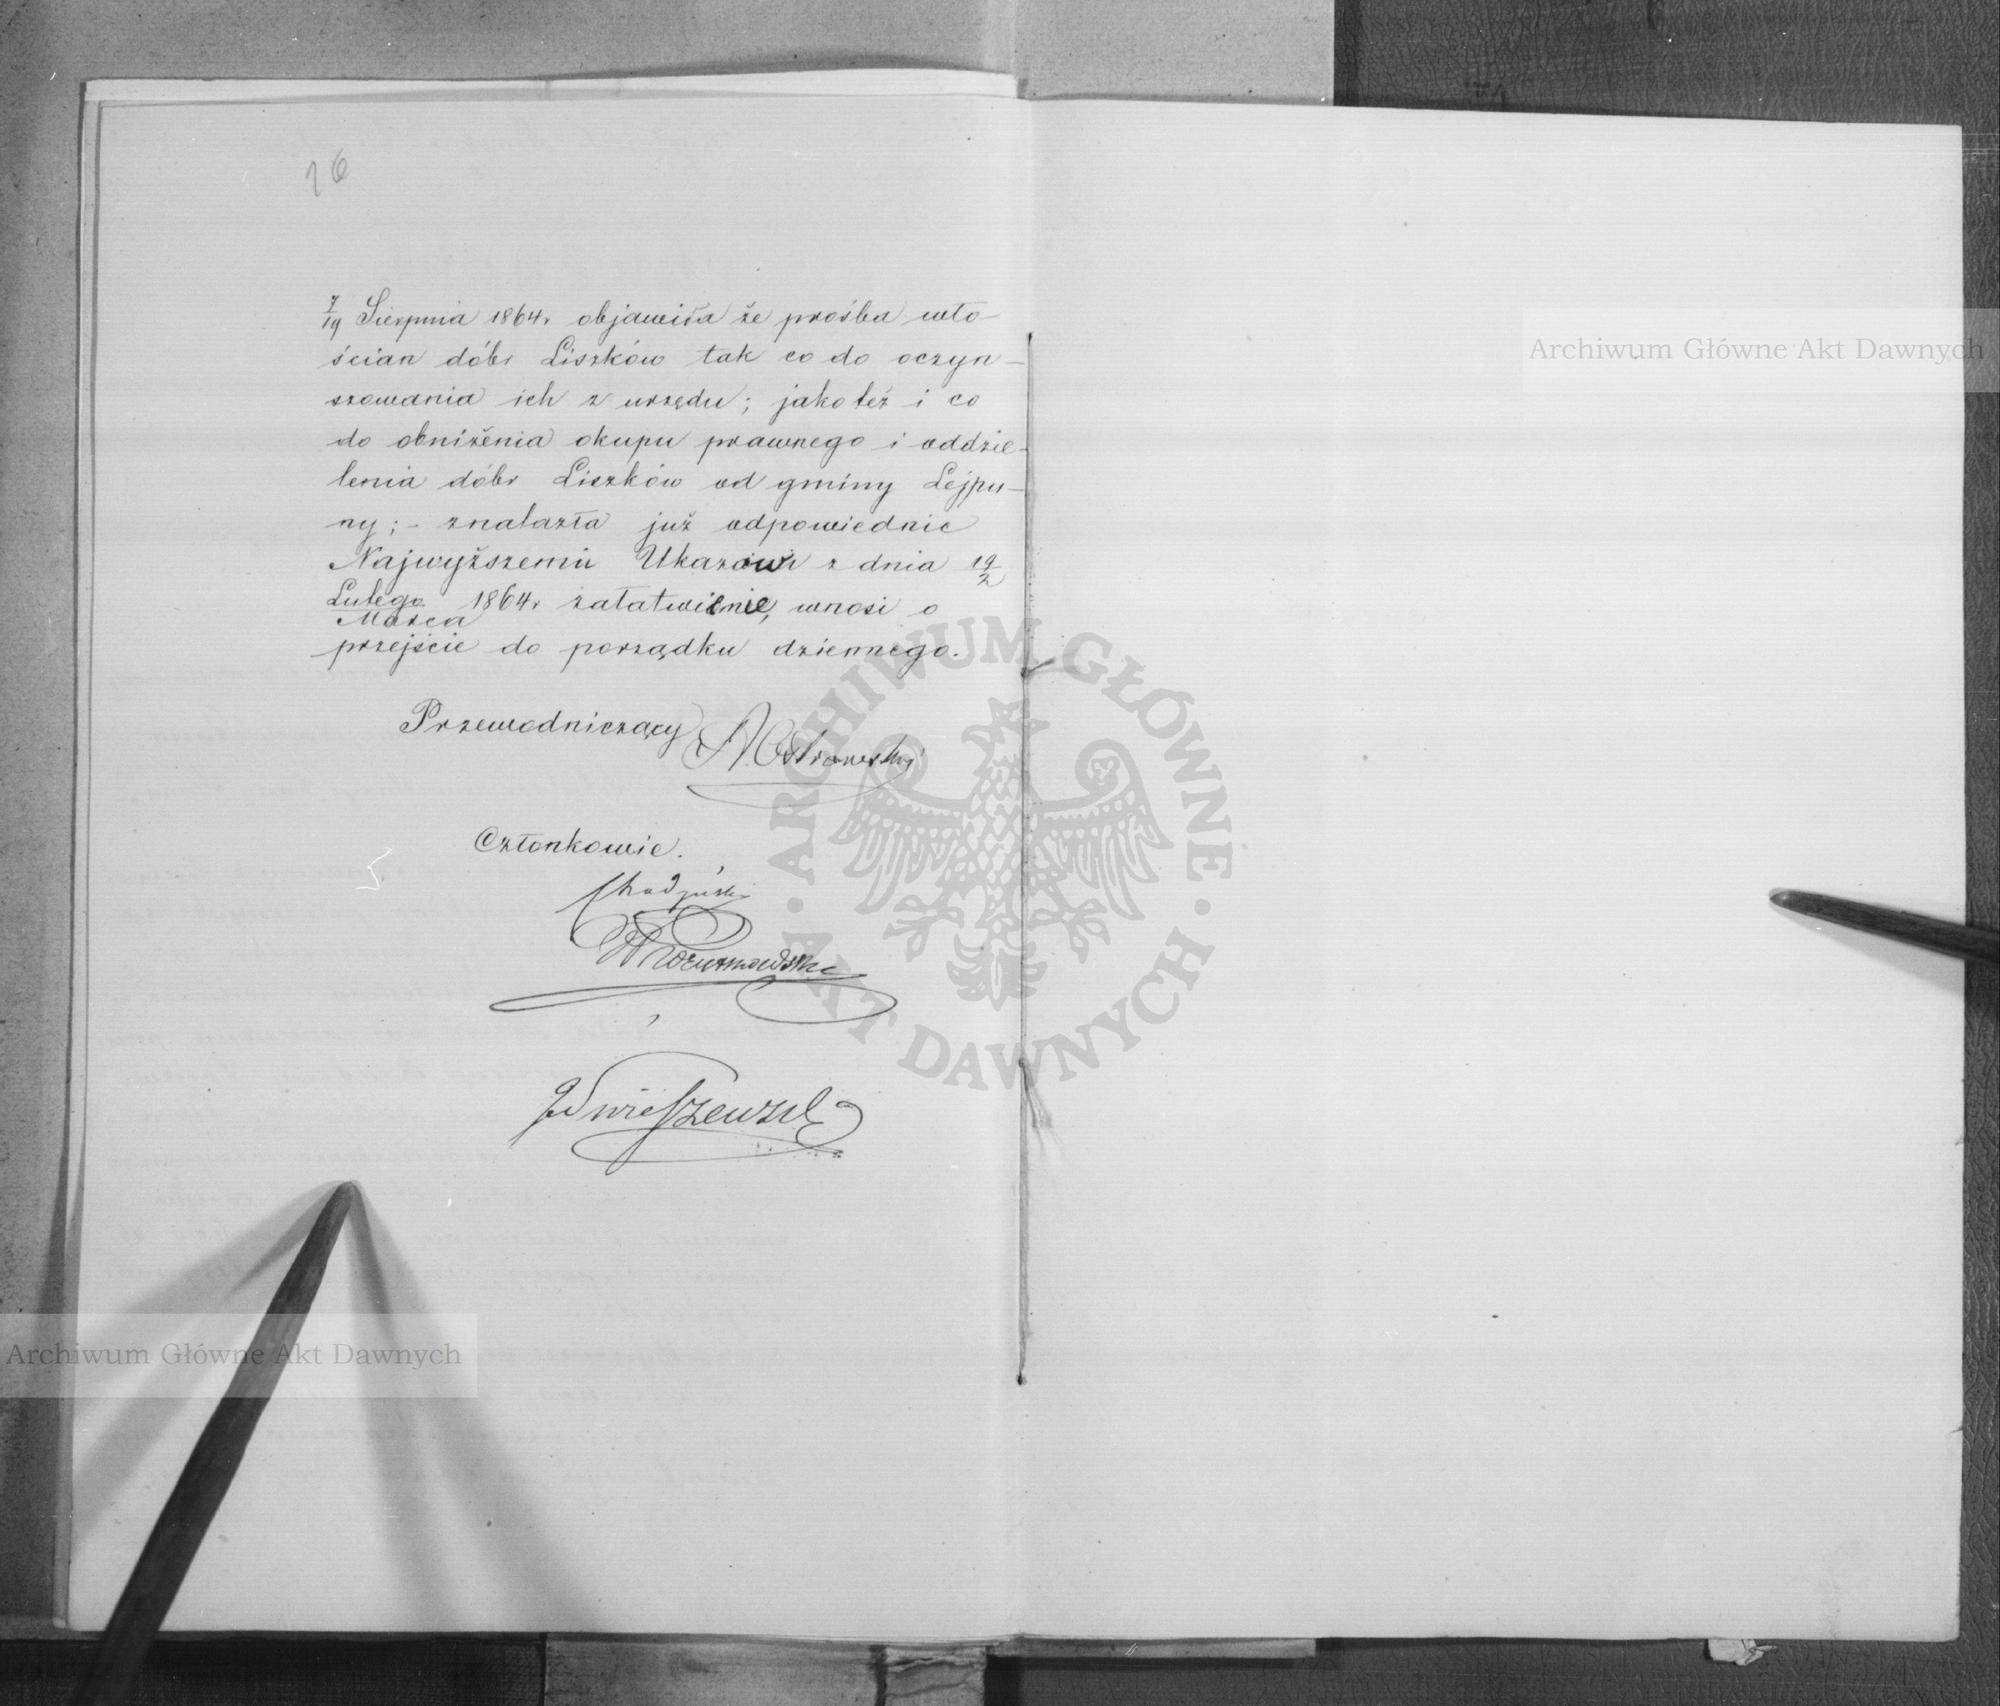 16
7/19 Sierpnia 1864r objawiła że prośba wło-
ścian dóbr Liszków tak co do oczyn-
szowania ich z urzędu; jako też i co
do obniżenia okupu prawnego i oddzie-
lenia dóbr Liszków od gminy Lejpu-
ny; - znalazła już odpowiednie
Najwyższemu Ukazowi z dnia 19/2
Lutego/Marca 1864r załatwienie, wnosi o
przejście do porządku dziennego.
Przewodniczący A Ostrowski
Członkowie.
Archiwum Główne Akt Dawnych
Archiwum Główne Akt Dawnych
ARCHIWUM GŁÓWNE AKT DAWNYCH